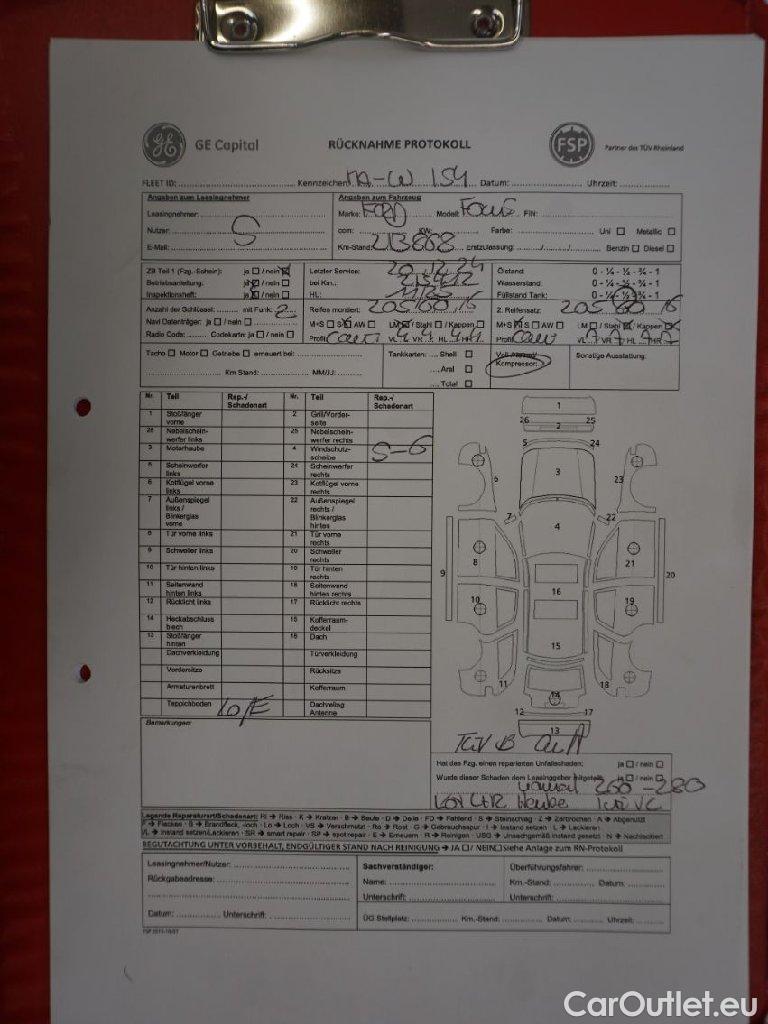 GE Capital
RÜCKNAHME PROTOKOLL
FSP
Partner des TÜV Rheinland
FLEET ID: Kennzeichen: MA-W 154 Datum: Uhrzeit:
Angaben zum Leasingnehmer
Leasingnehmer:
Nutzer: S
E-Mail:
Angaben zum Fahrzeug
Marke: Ford Modell: FIN:
ccm: KW: Farbe: Uni Metallic
Km-Stand: 213868 Erstzulassung: Benzin Diesel
ZB Teil 1 (Fzg.-Schein): ja / nein
Betriebsanleitung: ja / nein
Inspektionsheft: ja / nein
Letzter Service:
bei Km.:
HU:
Ölstand 0 - ¼ - ½ - ¾ - 1
Wasserstand: 0 - ¼ - ½ - ¾ - 1
Füllstand Tank: 0 - ¼ - ½ - ¾ - 1
Anzahl der Schlüssel: mit Funk: 2
Navi Datenträger: ja / nein
Radio Code: Codekarte: ja / nein
Reifen montiert: 205/60 16
M+S S AW LM / Stahl / Kappen
Profil VL 4 VR 4 HL 4 HR 4
2. Reifensatz: 205 60 16
M+S S AW LM / Stahl / Kappen
Profil VL 7 VR 7 HL 7 HR 7
Tacho Motor Getriebe erneuert bei:
Km Stand: MM/JJ:
Tankkarten: Shell
Aral
Total
Kompressor:
Sonstige Ausstattung:
Nr. Teil Rep.-/ Schadenart Nr. Teil Rep.-/ Schadenart
1 Stoßfänger vorne 2 Grill/Vorderseite
26 Nebelscheinwerfer links 25 Nebelscheinwerfer rechts
3 Motorhaube 4 Windschutzscheibe S-6
5 Scheinwerfer links 24 Scheinwerfer rechts
6 Kotflügel vorne links 23 Kotflügel vorne rechts
7 Außenspiegel links / Blinkerglas vorne 22 Außenspiegel rechts / Blinkerglas hinten
8 Tür vorne links 21 Tür vorne rechts
9 Schweller links 20 Schweller rechts
10 Tür hinten links 19 Tür hinten rechts
11 Seitenwand hinten links 18 Seitenwand hinten rechts
12 Rücklicht links 17 Rücklicht rechts
14 Heckabschlussblech 15 Kofferraumdeckel
13 Stoßfänger hinten 16 Dach
Dachverkleidung Türverkleidung
Vordersitze Rücksitze
Armaturenbrett Kofferraum
Teppichboden Lo/E Dachvelag Antenne
1
26 25
2
5 24
3
6 23
7 22
4
8 21
9 20
16
10 19
15
11 18
14
12 17
13
Bemerkungen:
TÜV B
Hat das Fzg. einen reparierten Unfallschaden: ja / nein
Wurde dieser Schaden dem Leasinggeber mitgeteilt: ja / nein
260-280
Legende Reparaturart/Schadenart: RI → Riss - K → Kratzer - B → Beule - D → Delle - FD → Fehlend - S → Steinschlag - Z → Zerbrochen - A → Abgenutzt
F → Flecken - B → Brandfleck, -loch - Lo → Loch - VS → Verschmutzt - Ro → Rost - G → Gebrauchsspur - I → Instand setzen - L → Lackieren
I/L → Instand setzen/Lackieren - SR → smart repair - SP → spot repair - E → Erneuern - R → Reinigen - USG → Unsachgemäß instand gesetzt - N → Nachlackiert
BEGUTACHTUNG UNTER VORBEHALT, ENDGÜLTIGER STAND NACH REINIGUNG → JA / NEIN Siehe Anlage zum RN-Protokoll
Leasingnehmer/Nutzer:
Rückgabeadresse:
Datum: Unterschrift:
Sachverständiger:
Name:
Unterschrift:
Überführungsfahrer:
Km.-Stand: Datum:
Unterschrift:
ÜG Stellplatz: Km.-Stand: Datum: Uhrzeit:
CarOutlet.eu